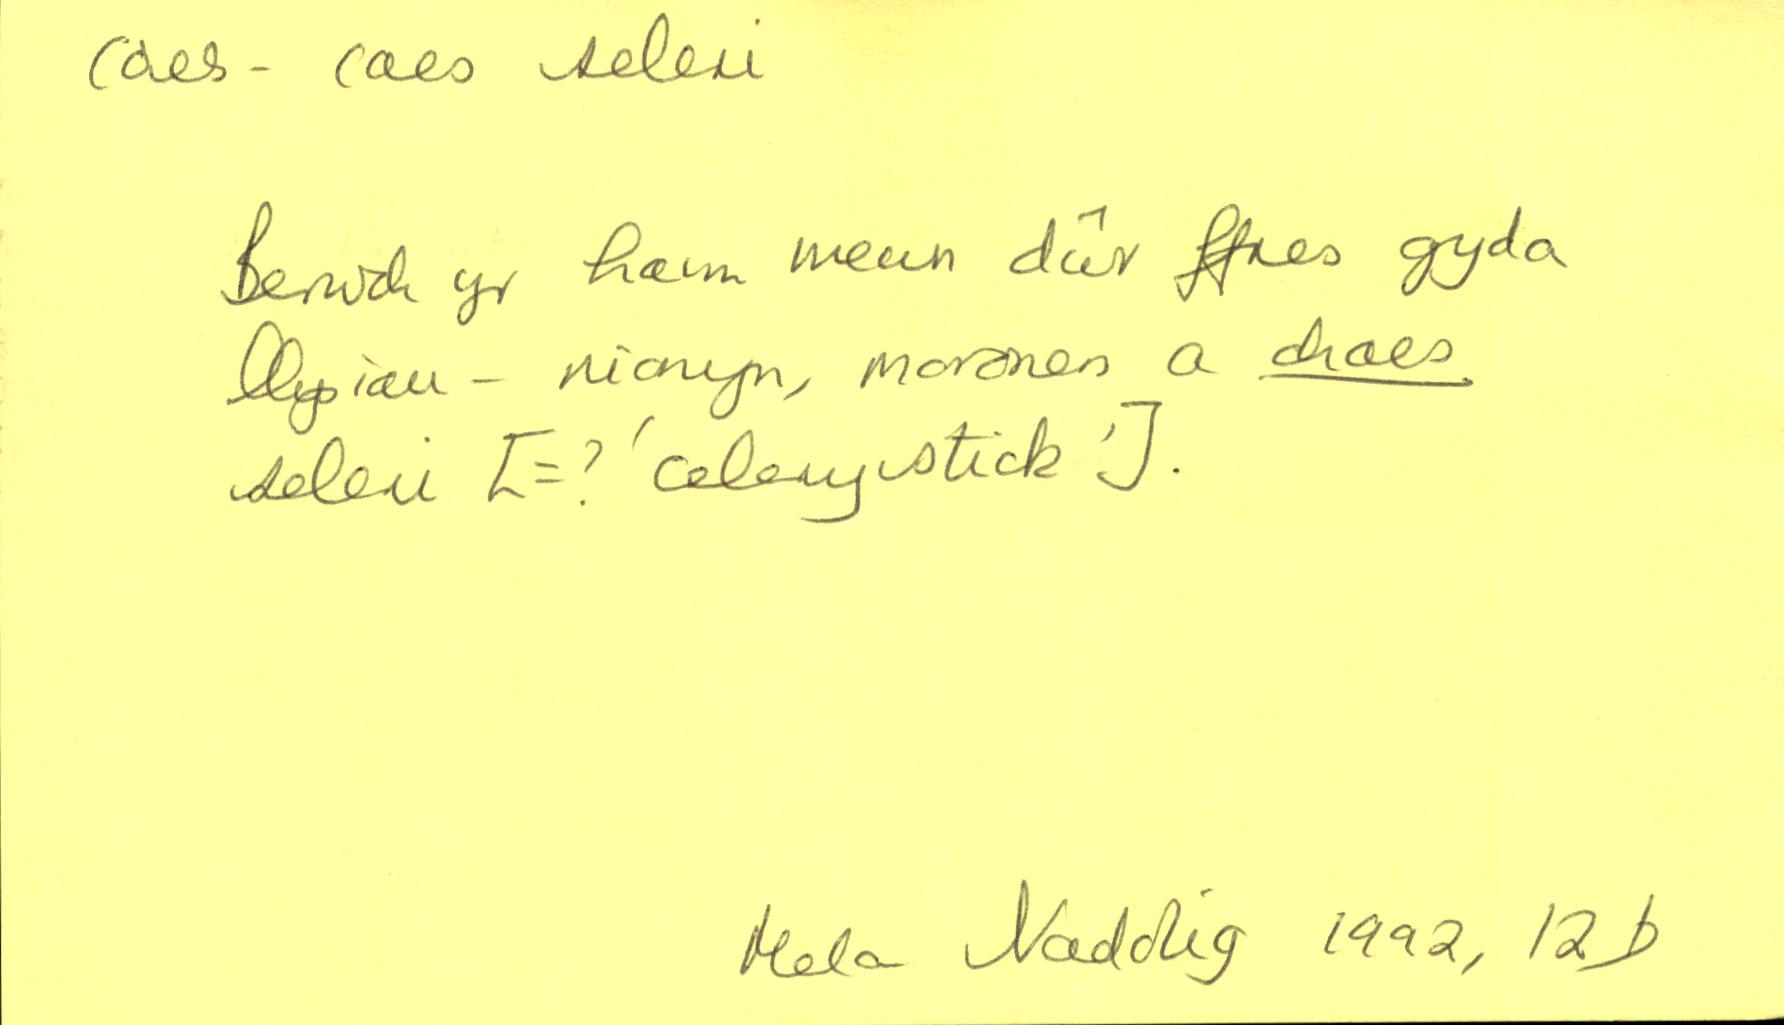 caes - caes seleri
Berwch yr ham mewn dŵr ffres gyda
llysiau - nionyn, moronen a chaes
seleri [=? 'celery stick'].
Hela Naddolig 1992, 12b